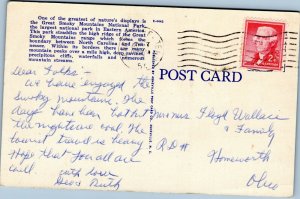 One of the greatest of nature's displays is
the Great Smoky Mountains National Park,
the largest national park in Eastern America.
This park straddles the high ridge of the Great
Smoky Mountains range which forms the
boundary between North Carolina and Ten-
nessee. Within its borders there are many
mountain peaks over a mile high, deep ravines,
precipitous cliffs, waterfalls and numerous
mountain streams.
POST CARD
Dear Folks:-
We have enjoyed the
Smoky mountains. The
days have been hot but
the nights are cool. The
tourist travel is heavy
Hope that you all are
well. with love
Ruth
Mr & Mrs. Floyd Wallace
& Family
R.D.#
Homeworth
Ohio